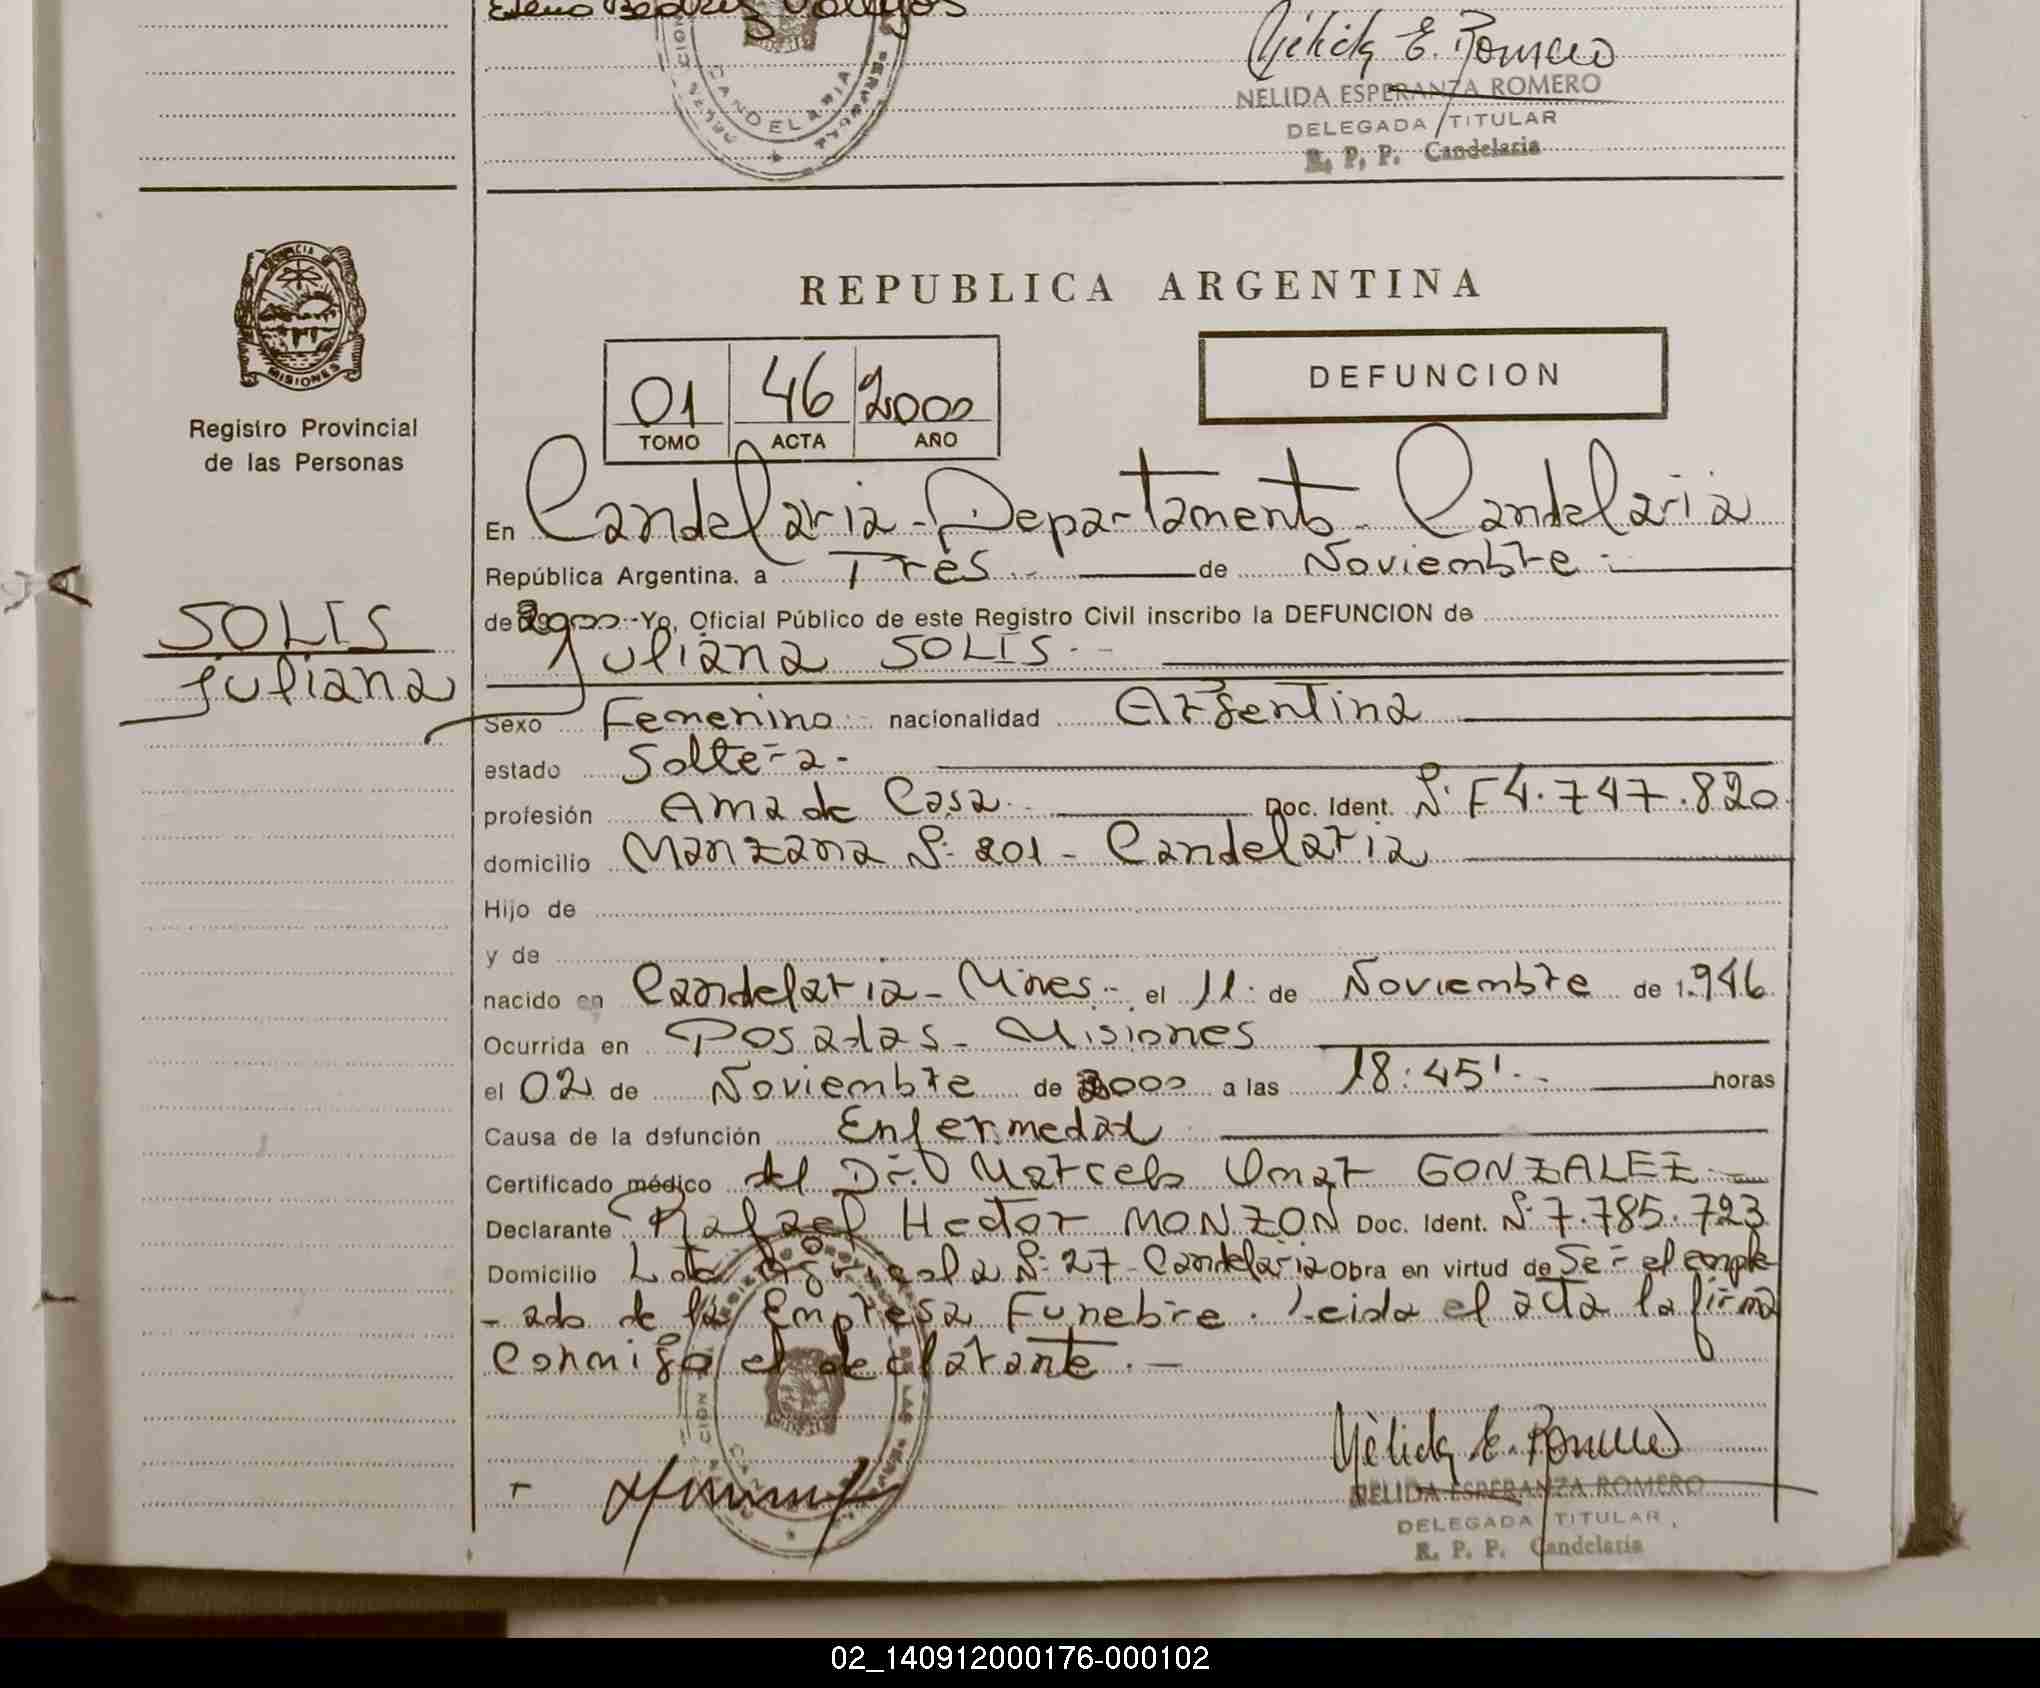 Elena Beatriz Vallejos
CANDELARIA
Nélida E. Romero
NELIDA ESPERANZA ROMERO
DELEGADA TITULAR
R. P. P. Candelaria
PROVINCIA DE
MISIONES
Registro Provincial
de las Personas
SOLIS
Juliana
REPUBLICA ARGENTINA
01 46 2000
TOMO ACTA AÑO
DEFUNCION
En Candelaria - Departamento Candelaria
República Argentina, a Tres de Noviembre
de 2000 - Yo, Oficial Público de este Registro Civil inscribo la DEFUNCION de
Juliana SOLIS.-
Sexo Femenino nacionalidad Argentina
estado Soltera-
profesión Ama de Casa Doc. Ident. Nº F4.747.820
domicilio Manzana Nº 201 - Candelaria
Hijo de
y de
nacido en Candelaria - Mnes.- el 11 de Noviembre de 1.946
Ocurrida en Posadas - Misiones
el 02 de Noviembre de 2000 a las 18:45'.- horas
Causa de la defunción Enfermedad
Certificado médico del Dr. Marcelo Omar GONZALEZ
Declarante Rafael Hector MONZON Doc. Ident. Nº 7.785.723
Domicilio Lote Agricola Nº 27 - Candelaria Obra en virtud de Ser el emple-
- ado de la Empresa Funebre. Leida el acta la firma
Conmigo el declarante.-
Nélida E. Romero
NELIDA ESPERANZA ROMERO
DELEGADA TITULAR
R. P. P. Candelaria
02_140912000176-000102